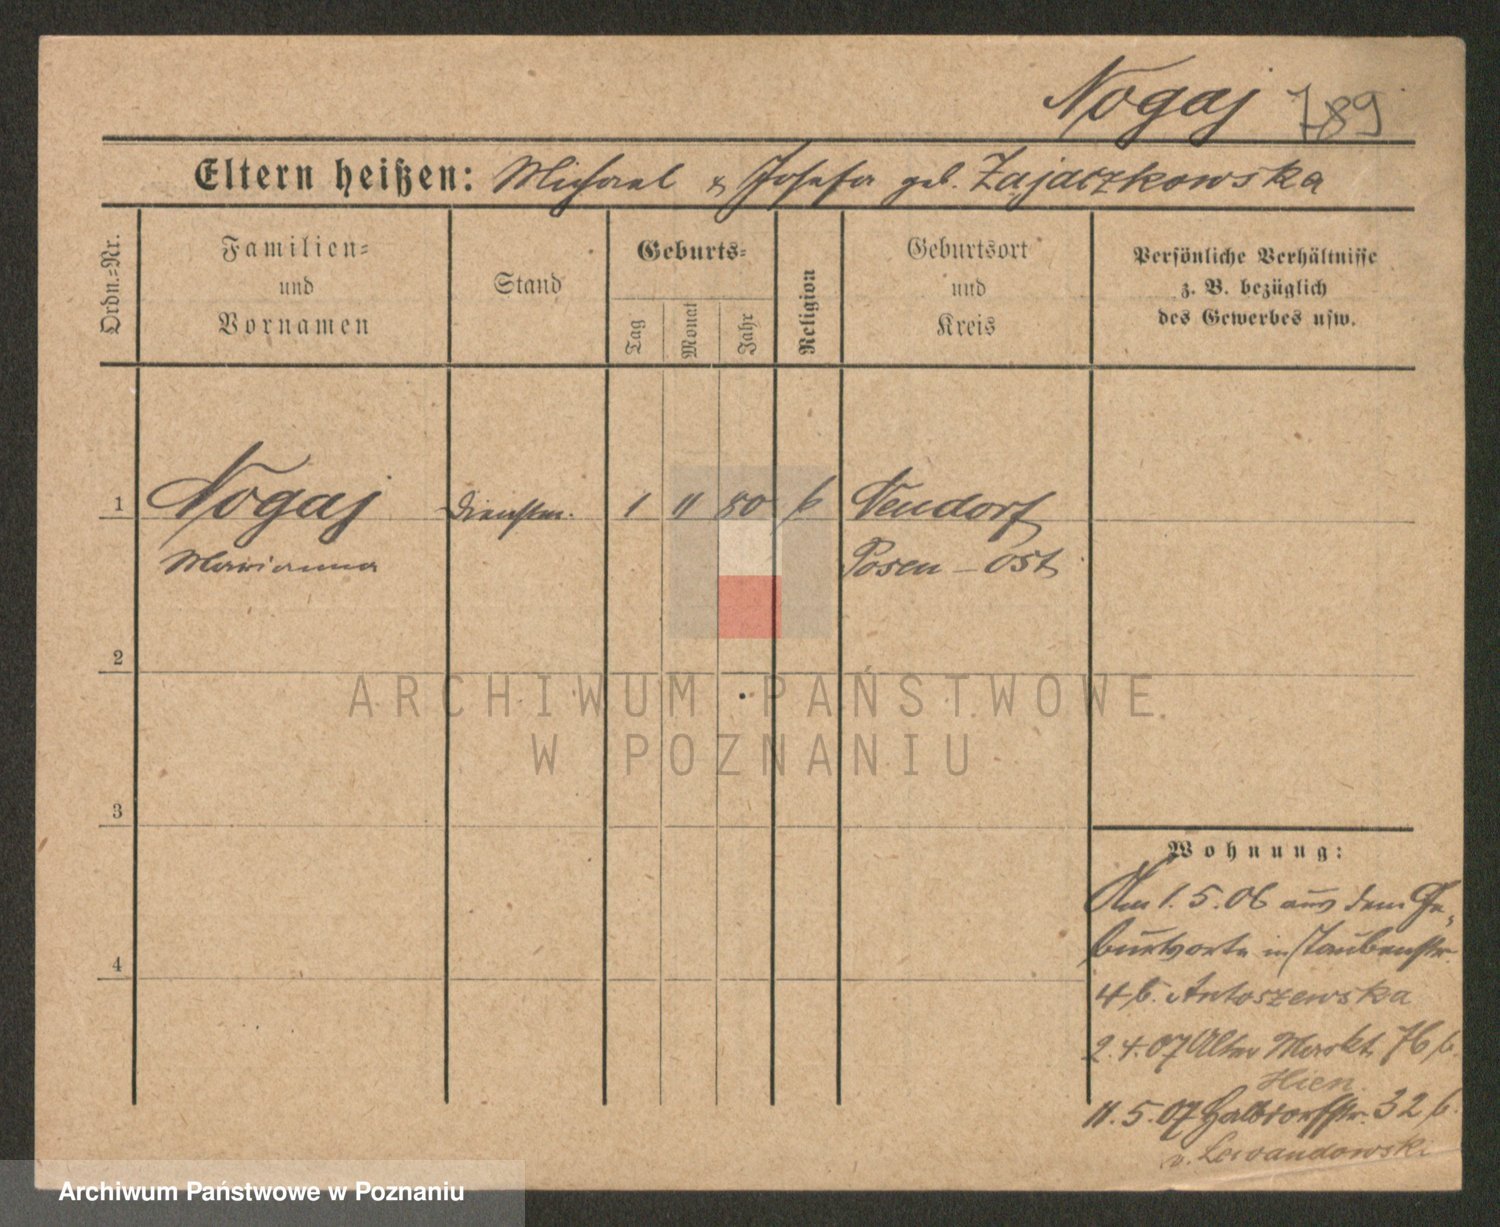 Nogaj 789
Eltern heißen: Michael & Josefa geb. Zajaczkowska
Ordn.=Nr.
Familien=
und
Vornamen
Stand
Geburts=
Tag
Monat
Jahr
Religion
Geburtsort
und
Kreis
Persönliche Verhältnisse
z. B. bezüglich
des Gewerbes usw.
1 Nogaj Dienstm. 1 11 80 k Neudorf
Marianna Posen - Ost
2
3
4
Wohnung:
Am 1.5.06 aus dem Ge-
burtsorte in Taubenstr.
4 b. Antoszewska
2.4.07 Alter Markt 76 b.
Hien
11.5.07 Halbdorfstr. 32 b.
v. Lewandowski
ARCHIWUM PAŃSTWOWE
W POZNANIU
Archiwum Państwowe w Poznaniu